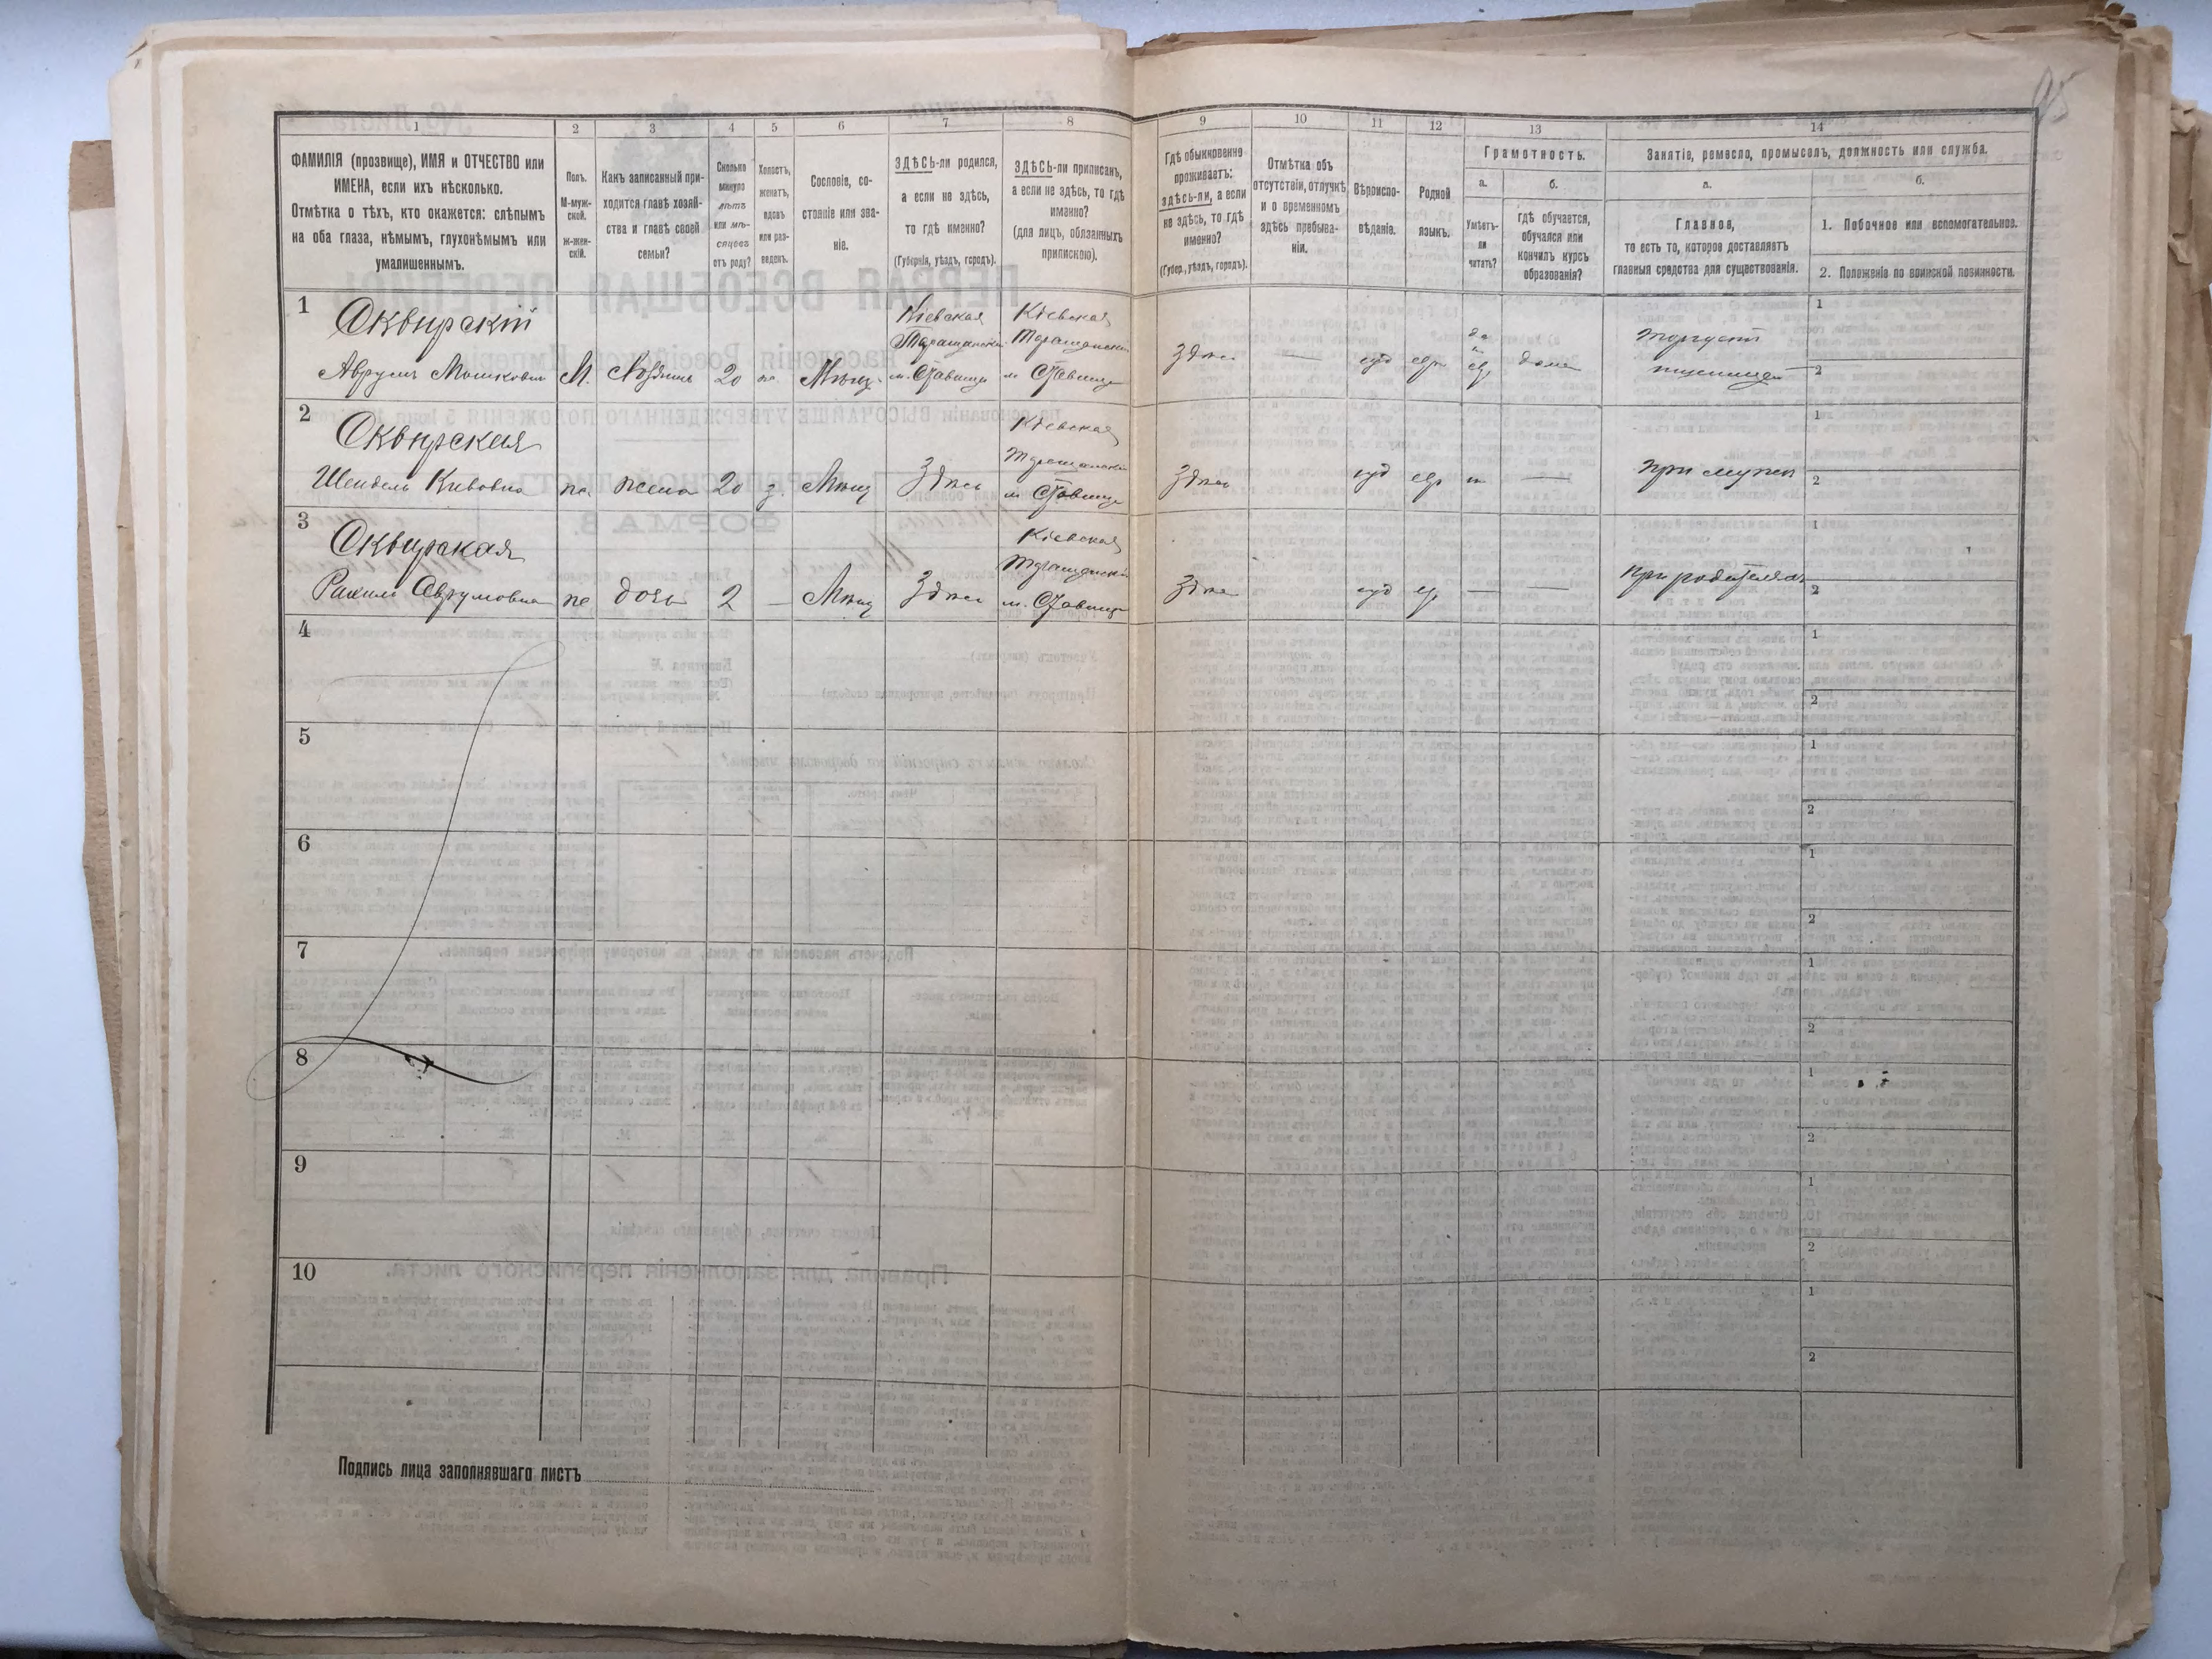 95
1 2 3 4 5 6 7 8 9 10 11 12 13 14
ФАМИЛІЯ (прозвище), ИМЯ и ОТЧЕСТВО или
ИМЕНА, если ихъ нѣсколько.
Отмѣтка о тѣхъ, кто окажется: слѣпымъ
на оба глаза, нѣмымъ, глухонѣмымъ или
умалишеннымъ.
Полъ.
М-муж-
ской.
Ж-жен-
скій.
Какъ записанный при-
ходится главѣ хозяй-
ства и главѣ своей
семьи?
Сколько
минуло
лѣтъ
или мѣ-
сяцевъ
отъ роду?
Холостъ,
женатъ,
вдовъ
или раз-
веденъ.
Сословіе, со-
стояніе или зва-
ніе.
ЗДѢСЬ-ли родился,
а если не здѣсь,
то гдѣ именно?
(Губернія, уѣздъ, городъ).
ЗДѢСЬ-ли приписанъ,
а если не здѣсь, то гдѣ
именно?
(для лицъ, обязанныхъ
припискою).
Гдѣ обыкновенно
проживаетъ:
здѣсь-ли, а если
не здѣсь, то гдѣ
именно?
(Губер., уѣздъ, городъ).
Отмѣтка объ
отсутствіи, отлучкѣ
и о временномъ
здѣсь пребыва-
ніи.
Вѣроиспо-
вѣданіе.
Родной
языкъ.
Грамотность.
а.
Умѣетъ-
ли
читать?
б.
гдѣ обучается,
обучался или
кончилъ курсъ
образованія?
Занятіе, ремесло, промыселъ, должность или служба.
а.
Главное,
то есть то, которое доставляетъ
главныя средства для существованія.
б.
1. Побочное или вспомогательное.
2. Положеніе по воинской повинности.
1
Сквирскій
Аврумъ Мошковъ М. Хозяинъ 20 ж Мѣщ.
Кіевская
Таращанскій
м. Ставищи
Кіевская
Таращанскій
м. Ставищи
Здѣсь — іуд евр
да
евр дома
Торгуетъ
пшеницей
1
2
2
Сквирская
Шендель Кивовна ж. жена 20 з. Мѣщ Здѣсь
Кіевская
Таращанскій
м. Ставищи
Здѣсь іуд евр н —
При мужѣ
1
2
3
Сквирская
Рахиль Аврумовна ж дочь 2 — Мѣщ Здѣсь
Кіевская
Таращанскій
м. Ставищи
Здѣсь іуд ев — —
При родителяхъ
1
2
4
1
2
5
1
2
6
1
2
7
1
2
8
1
2
9
1
2
10
1
2
Подпись лица заполнявшаго листъ